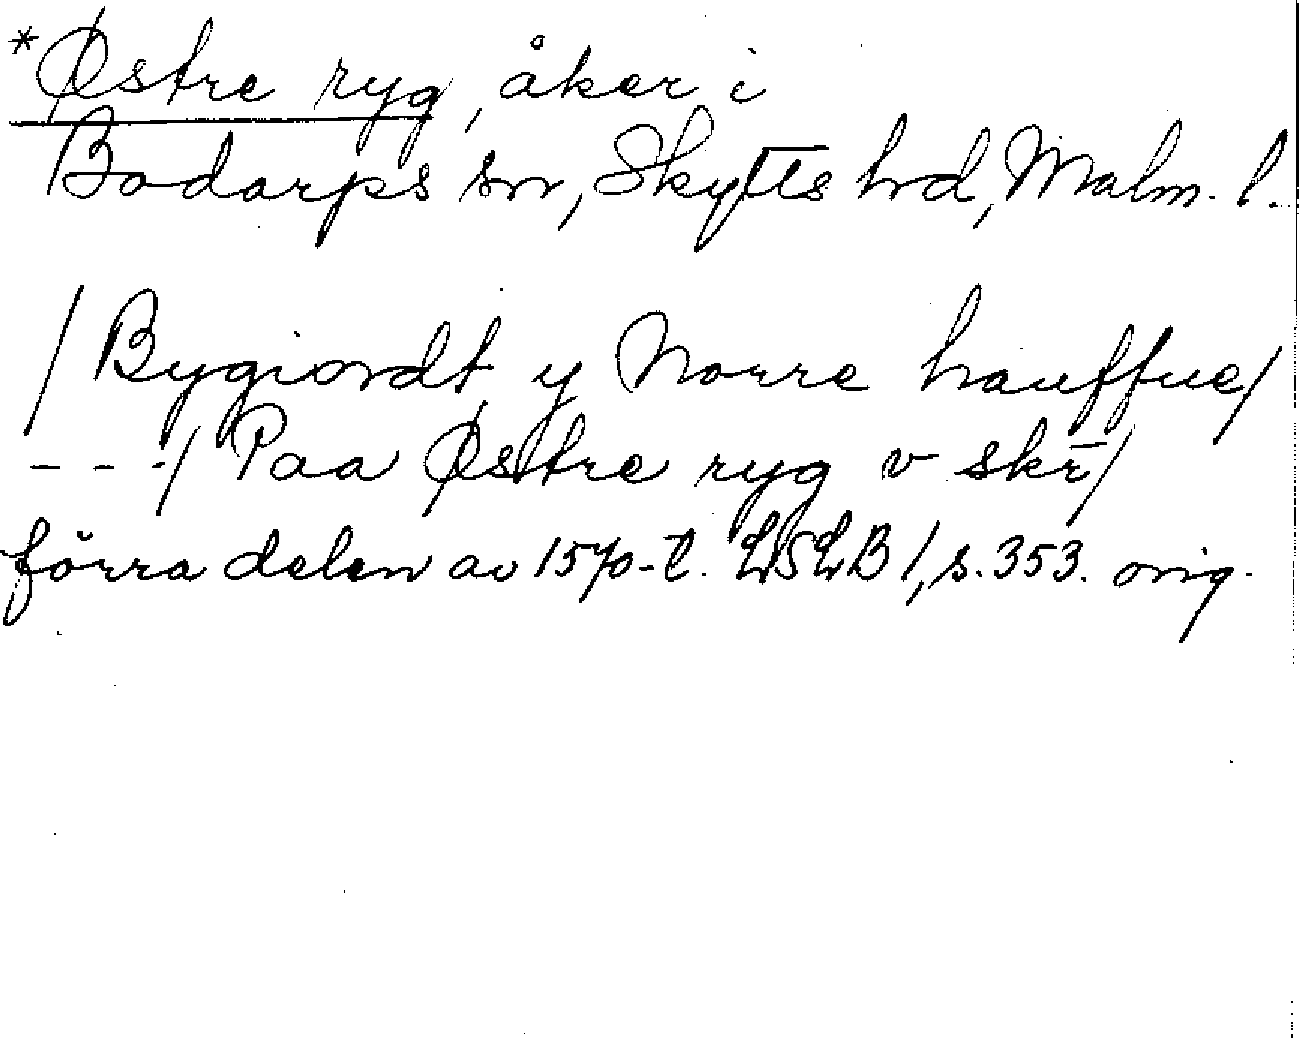 *Østre ryg, åker i
Bodarps sn, Skytts hd, Malm. l.
/Bygiordt y Norre hauffue/
---/ Paa Østre ryg v skr̄/
förra delen av 1570-t. LSLB 1, s. 353. orig.